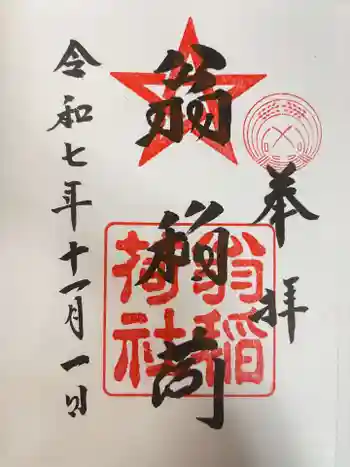 奉拝
翁稲荷
翁稲荷社
令和七年十一月一日